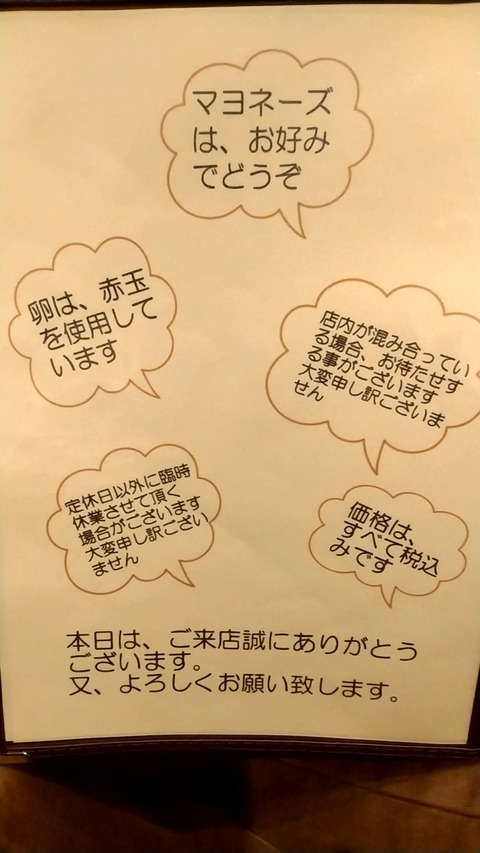 マヨネーズ
は、お好み
でどうぞ
卵は、赤玉
を使用して
います
店内が混み合ってい
る場合、お待たせす
る事がございます
大変申し訳ございま
せん
定休日以外に臨時
休業させて頂く
場合がございます
大変申し訳ござい
ません
価格は、
すべて税込
みです
本日は、ご来店誠にありがとう
ございます。
又、よろしくお願い致します。